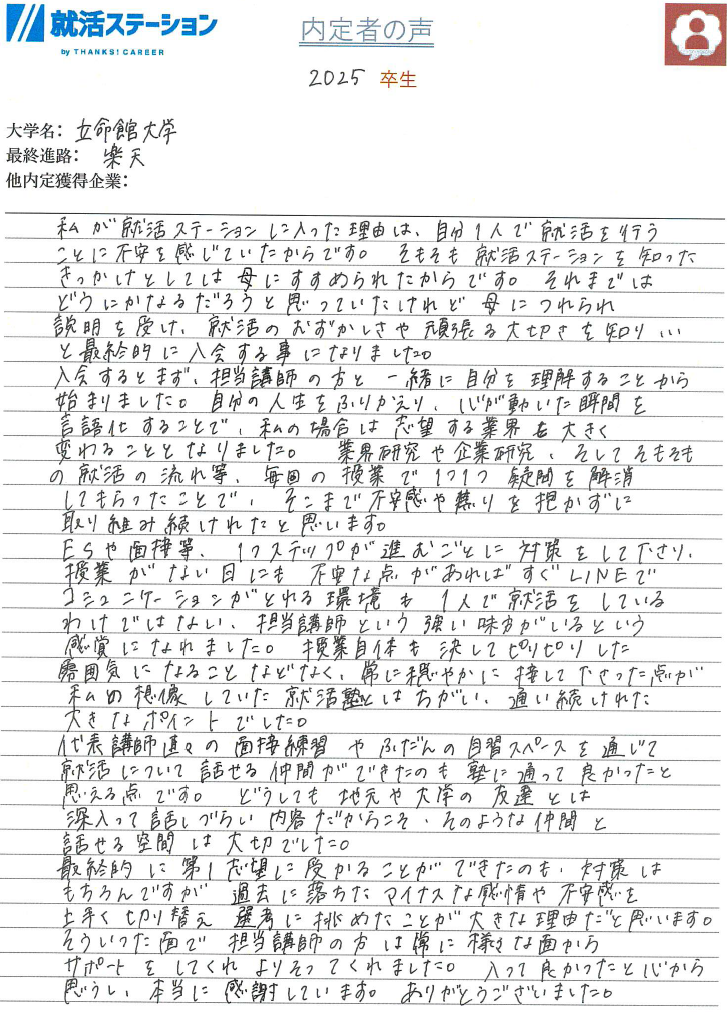 就活ステーション
by THANKS! CAREER
内定者の声
2025 卒生
大学名: 立命館大学
最終進路: 楽天
他内定獲得企業:
私が就活ステーションに入った理由は、自分1人で就活を行う
ことに不安を感じていたからです。そもそも就活ステーションを知った
きっかけとしては母にすすめられたからです。それまでは
どうにかなるだろうと思っていたけれど母につれられ
説明を受け、就活のむずかしさや頑張る大切さを知り…
と最終的に入会する事になりました。
入会するとまず、担当講師の方と一緒に自分を理解することから
始まりました。自分の人生をふりかえり、心が動いた瞬間を
言語化することで、私の場合は志望する業界も大きく
変わることとなりました。業界研究や企業研究、そしてそもそも
の就活の流れ等、毎回の授業で1つ1つ疑問を解消
してもらったことで、そこまで不安感や焦りを抱かずに
取り組み続けれたと思います。
ESや面接等、1つステップが進むごとに対策をして下さり、
授業がない日にも不安な点があればすぐLINEで
コミュニケーションがとれる環境も1人で就活をしている
わけではない、担当講師という強い味方がいるという
感覚になれました。授業自体も決してピリピリした
雰囲気になることなどなく、常に穏やかに接して下さった点が
私の想像していた就活塾とはちがい、通い続けれた
大きなポイントでした。
代表講師直々の面接練習やふだんの自習スペースを通じて
就活について話せる仲間ができたのも塾に通って良かったと
思える点です。どうしても地元や大学の友達とは
深入って話しづらい内容だからこそ、そのような仲間と
話せる空間は大切でした。
最終的に第1志望に受かることができたのも、対策は
もちろんですが過去に落ちたマイナスな感情や不安感を
上手く切り替え選考に挑めたことが大きな理由だと思います。
そういった面で担当講師の方は常に様々な面から
サポートをしてくれよりそってくれました。入って良かったと心から
思うし、本当に感謝しています。ありがとうございました。